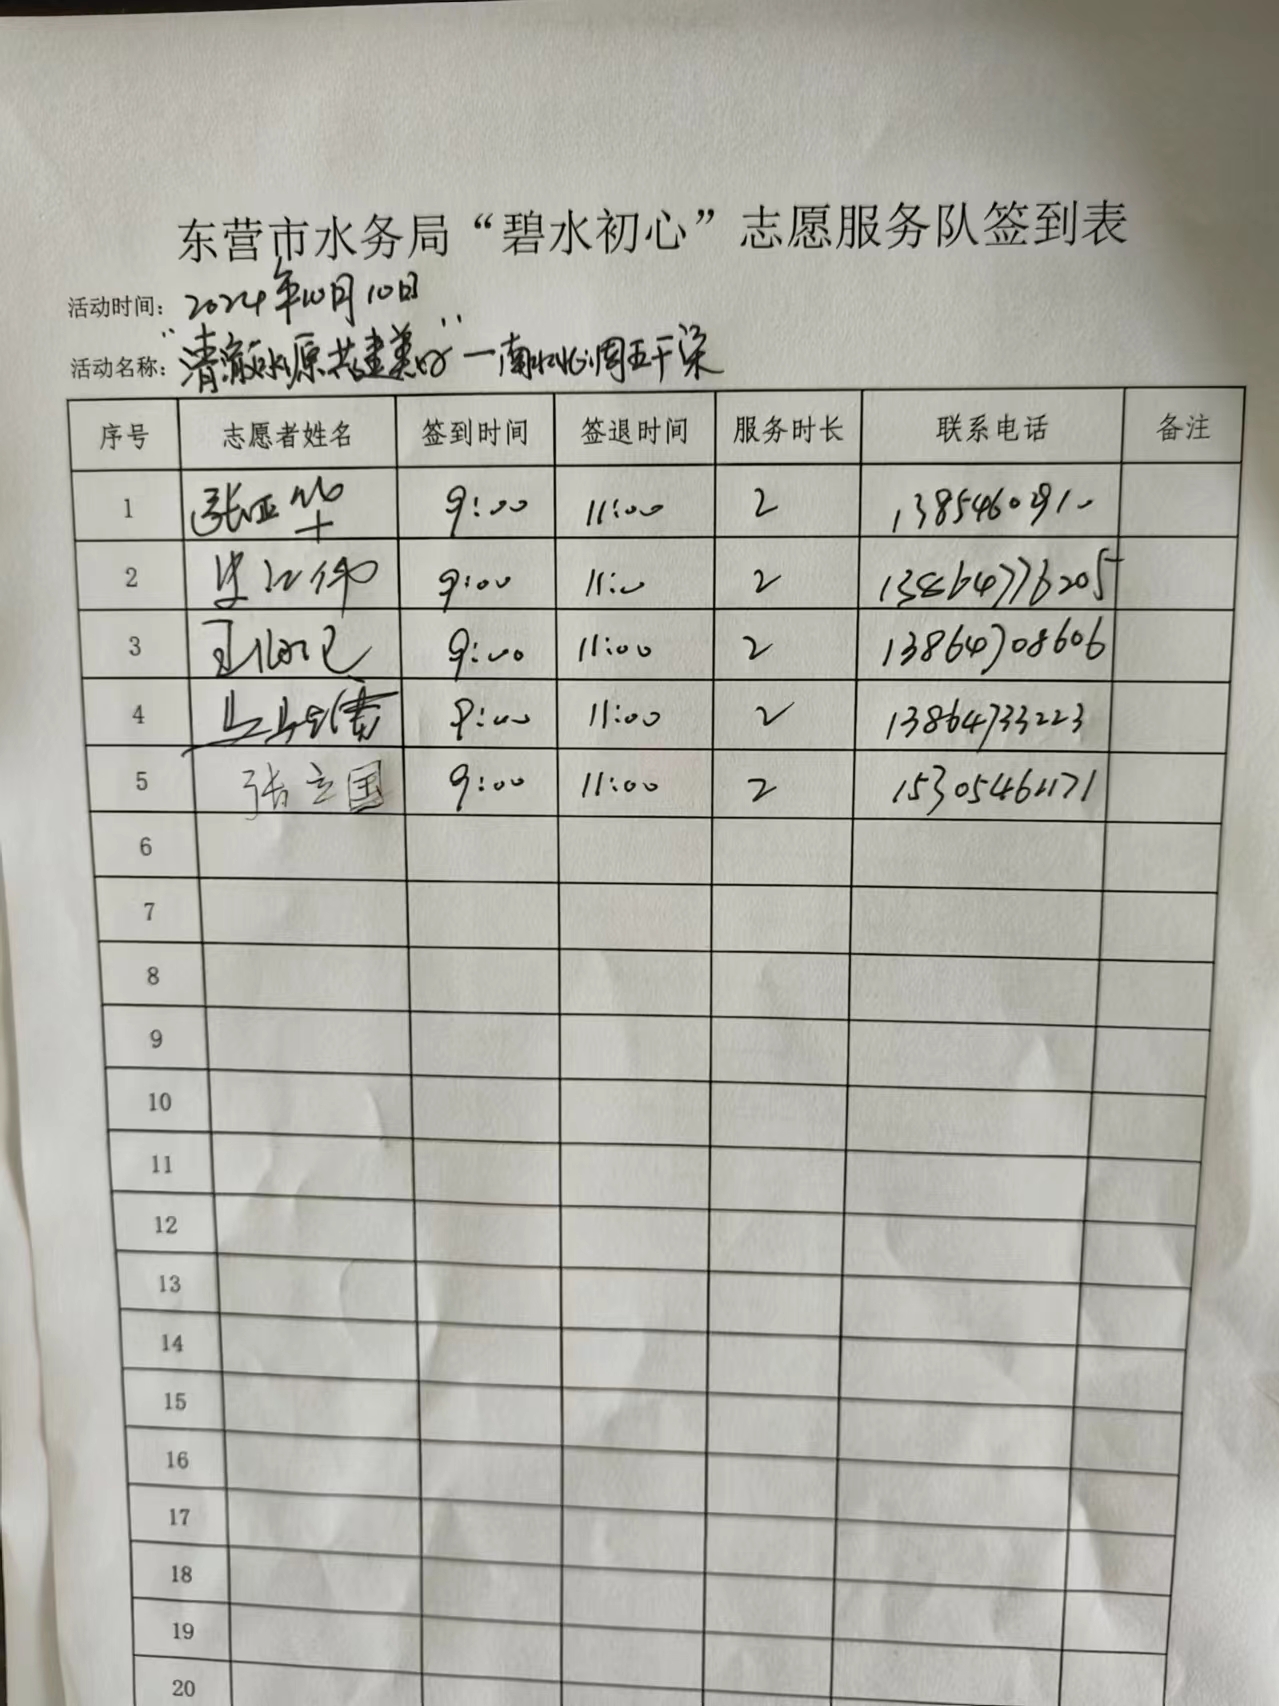 东营市水务局“碧水初心”志愿服务队签到表
活动时间：2024年10月10日
活动名称：“清澈水源共建美好”—南水北调五干渠
序号 志愿者姓名 签到时间 签退时间 服务时长 联系电话 备注
1 张亚华 9:00 11:00 2 13854602910
2 9:00 11:00 2 13864776205
3 9:00 11:00 2 13864708606
4 9:00 11:00 2 13864733223
5 张立国 9:00 11:00 2 15305461171
6
7
8
9
10
11
12
13
14
15
16
17
18
19
20